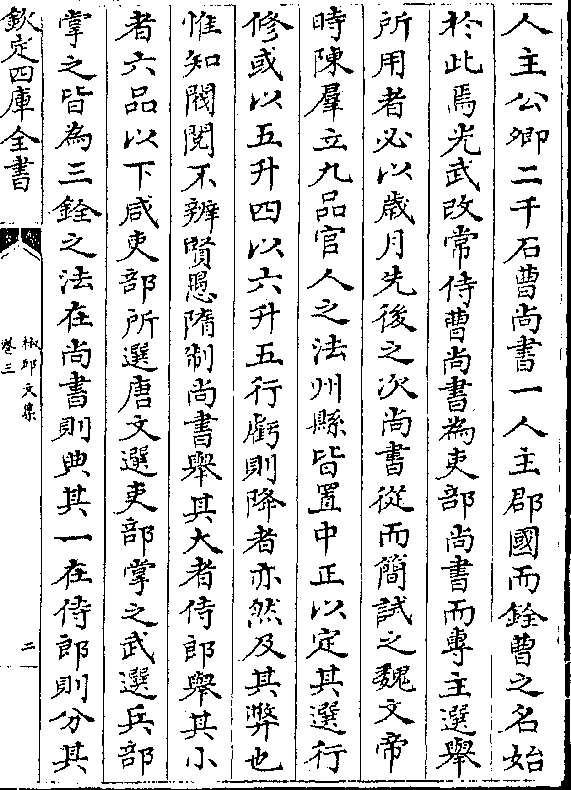 人主公卿二千石曹尚書一人主郡國而銓曹之名始
於此焉光武改常侍曹尚書為吏部尚書而專主選舉
所用者必以歳月先後之次尚書從而簡試之魏文帝
時陳羣立九品官人之法州縣皆置中正以定其選行
修或以五升四以六升五行虧則降者亦然及其弊也
惟知閥閱不辨賢愚隋制尚書舉其大者侍郎舉其小
者六品以下咸吏部所選唐文選吏部掌之武選兵部
掌之皆為三銓之法在尚書則典其一在侍郎則分其
欽定四庫全書
椒邱文集
卷三
二